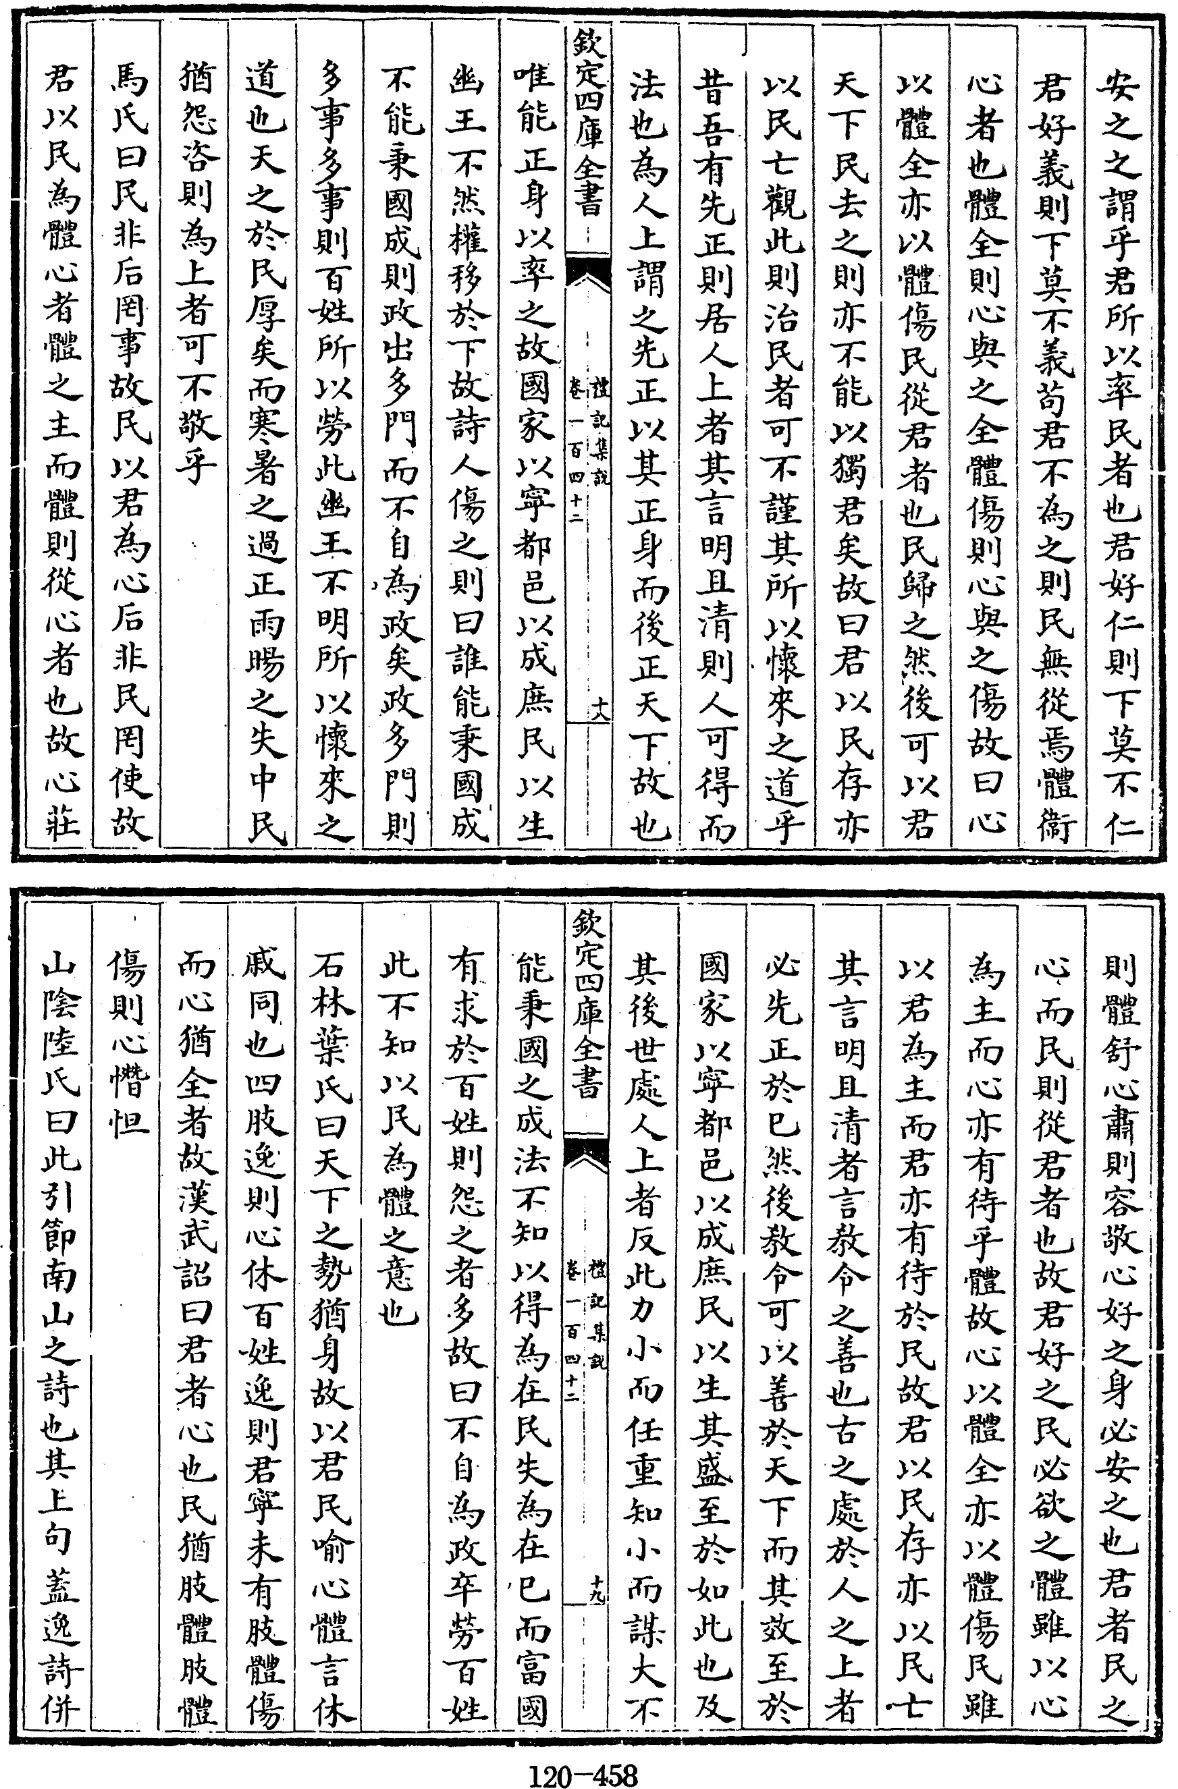 安之之謂乎君所以率民者也君好仁則下莫不仁
君好義則下莫不義苟君不為之則民無從焉體衞
心者也體全則心與之全體傷則心與之傷故曰心
以體全亦以體傷民從君者也民歸之然後可以君
天下民去之則亦不能以獨君矣故曰君以民存亦
以民亡觀此則治民者可不謹其所以懷來之道乎
昔吾有先正則居人上者其言明且清則人可得而
法也為人上謂之先正以其正身而後正天下故也
欽定四庫全書
禮記集說
卷一百四十二
十八
唯能正身以率之故國家以寧都邑以成庶民以生
幽王不然權移於下故詩人傷之則曰誰能秉國成
不能秉國成則政出多門而不自為政矣政多門則
多事多事則百姓所以勞此幽王不明所以懷來之
道也天之於民厚矣而寒暑之過正雨暘之失中民
猶怨咨則為上者可不敬乎
馬氏曰民非后罔事故民以君為心后非民罔使故
君以民為體心者體之主而體則從心者也故心莊
則體舒心肅則容敬心好之身必安之也君者民之
心而民則從君者也故君好之民必欲之體雖以心
為主而心亦有待乎體故心以體全亦以體傷民雖
以君為主而君亦有待於民故君以民存亦以民亡
其言明且清者言教令之善也古之處於人之上者
必先正於已然後教令可以善於天下而其效至於
國家以寧都邑以成庶民以生其盛至於如此也及
其後世處人上者反此力小而任重知小而謀大不
欽定四庫全書
禮記集說
卷一百四十二
十九
能秉國之成法不知以得為在民失為在已而富國
有求於百姓則怨之者多故曰不自為政卒勞百姓
此不知以民為體之意也
石林葉氏曰天下之勢猶身故以君民喻心體言休
戚同也四肢逸則心休百姓逸則君寧未有肢體傷
而心猶全者故漢武詔曰君者心也民猶肢體肢體
傷則心憯怛
山陰陸氏曰此引節南山之詩也其上句蓋逸詩併
120-458